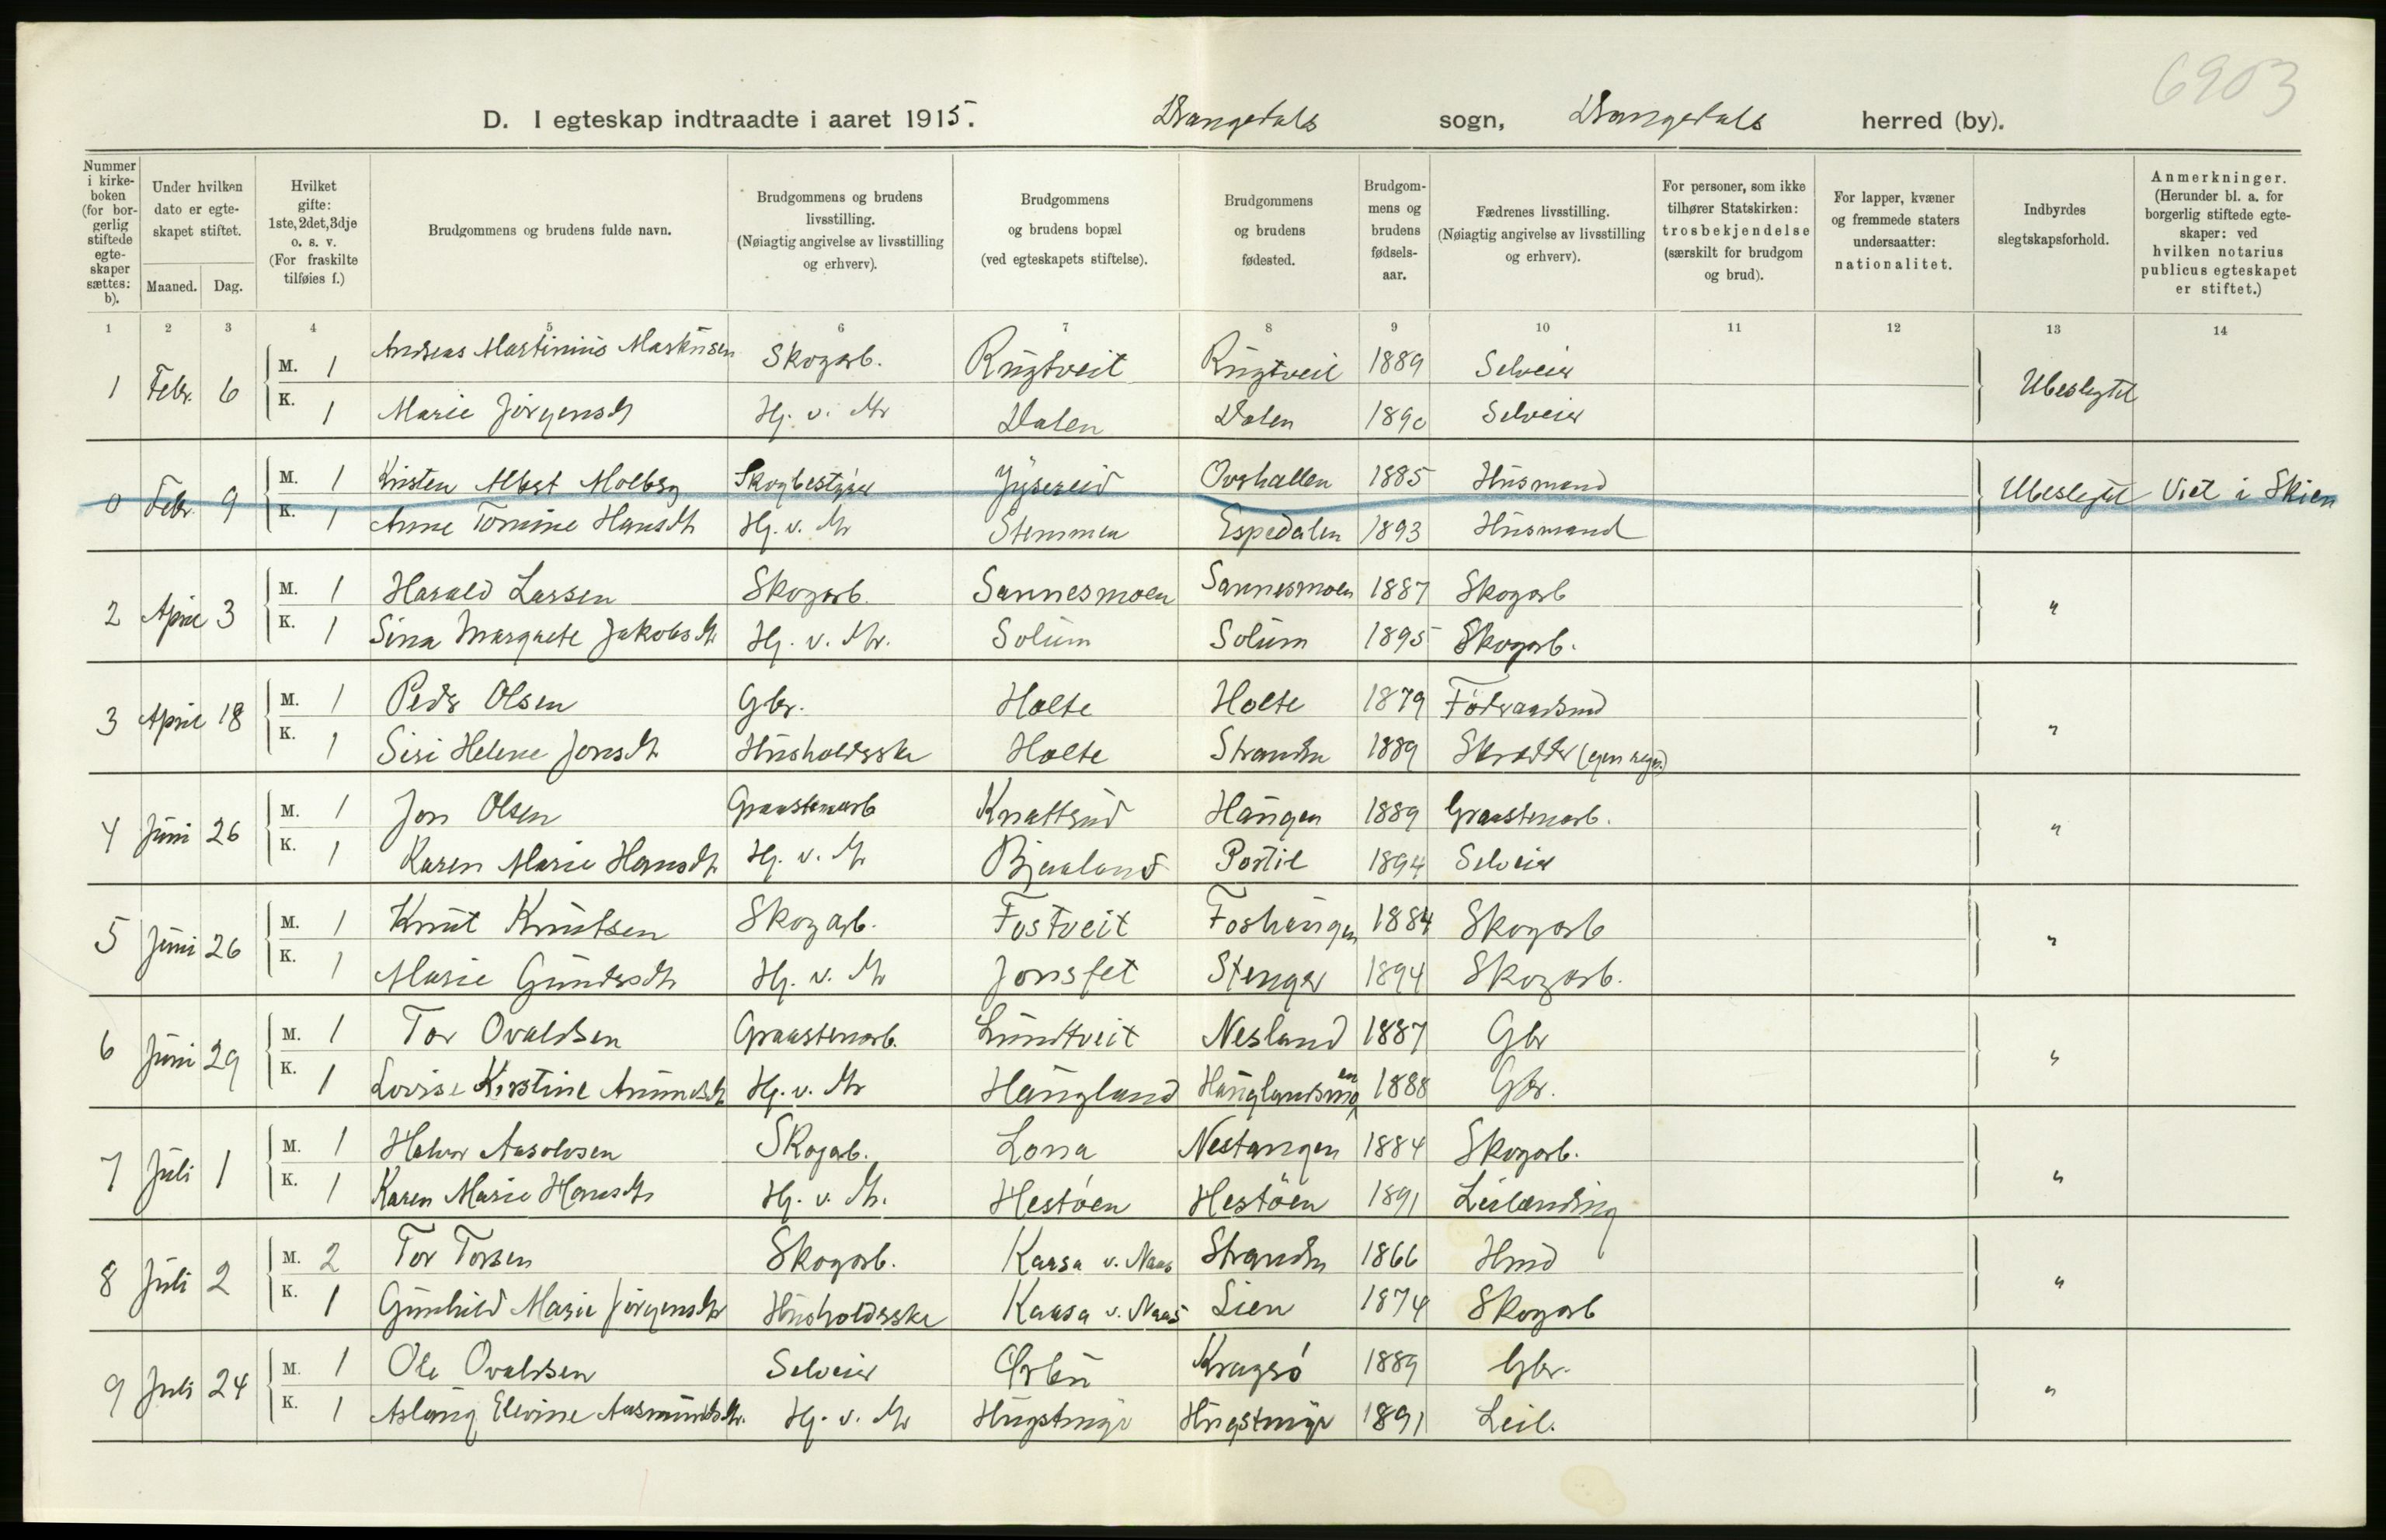 6903
D. I egteskap indtraadte i aaret 1915. Drangedals sogn, Drangedals herred (by).
Nummer i kirke-boken (for bor-gerlig stiftede egte-skaper sættes: b). Under hvilken dato er egte-skapet stiftet. Maaned. Dag. Hvilket gifte: 1ste, 2det, 3dje o. s. v. (For fraskilte tilføies f.) Brudgommens og brudens fulde navn. Brudgommens og brudens livsstilling. (Nøiagtig angivelse av livsstilling og erhverv). Brudgommens og brudens bopæl (ved egteskapets stiftelse). Brudgommens og brudens fødested. Brudgom-mens og brudens fødsels-aar. Fædrenes livsstilling. (Nøiagtig angivelse av livsstilling og erhverv). For personer, som ikke tilhører Statskirken: trosbekjendelse (særskilt for brudgom og brud). For lapper, kvæner og fremmede staters undersaatter: nationalitet. Indbyrdes slegtskapsforhold. Anmerkninger. (Herunder bl. a. for borgerlig stiftede egte-skaper: ved hvilken notarius publicus egteskapet er stiftet.)
1 2 3 4 5 6 7 8 9 10 11 12 13 14
1 Febr. 6 M. 1 Andreas Martinius Markusen Skogarb. Rugtveit Rugtveit 1889 Selveier Ubeslegtet
K. 1 Marie Jörgensdt Hj. v. Mr Dalen Dalen 1890 Selveier
0 Febr. 9 M. 1 Kristen Albert Molberg Skogbestyrer Ovshallen 1885 Husmand Ubeslegtet Viet i Skien
K. 1 Anne Tomine Hansdt Hj. v. Mr Stemmen Espedalen 1893 Husmand
2 April 3 M. 1 Harald Larsen Skogarb. Sannesmoen Sannesmoen 1887 Skogarb "
K. 1 Sina Margrete Jakobsdt Hj. v. Mr. Solum Solum 1895 Skogarb.
3 April 18 M. 1 Peder Olsen Gbr. Holte Holte 1879 Föderaadsmd "
K. 1 Siri Helene Jonsdt Husholderske Holte Stranden 1889 Skrædder (egen regn.)
4 Juni 26 M. 1 Jon Olsen Graastenarb Knattsud Haugen 1889 Graastenarb. "
K. 1 Karen Marie Hansdt Hj. v. Mr Bjaaland Portil 1894 Selveier
5 Juni 26 M. 1 Knut Knutsen Skogarb. Fostveit Foshaugen 1884 Skogarb "
K. 1 Marie Gundersdt Hj. v. Mr Jonsfet Stenger 1894 Skogarb.
6 Juni 29 M. 1 Tor Ovaldsen Graastenarb. Lundtveit Nesland 1887 Gbr "
K. 1 Lovise Kirstine Amundsdt Hj. v. Mr Haugland Hauglandsmoen 1888 Gbr.
7 Juli 1 M. 1 Halvor Aasolvsen Skogarb. Lona Nestangen 1884 Skogarb. "
K. 1 Karen Marie Hansdt Hj. v. Mr. Hestöen Hestöen 1891 Leilænding
8 Juli 2 M. 2 Tor Torsen Skogarb. Kaasa v. Naas Stranden 1866 Hmd "
K. 1 Gunhild Marie Jörgensdtr Husholderske Kaasa v. Naas Lien 1874 Skogarb
9 Juli 24 M. 1 Ole Ovaldsen Selveier Örbu Kragsö 1889 Gbr. "
K. 1 Aslaug Elevine Aasmundsdtr. Hj. v. Mr Hugstmyr Hugstmyr 1891 Leil.